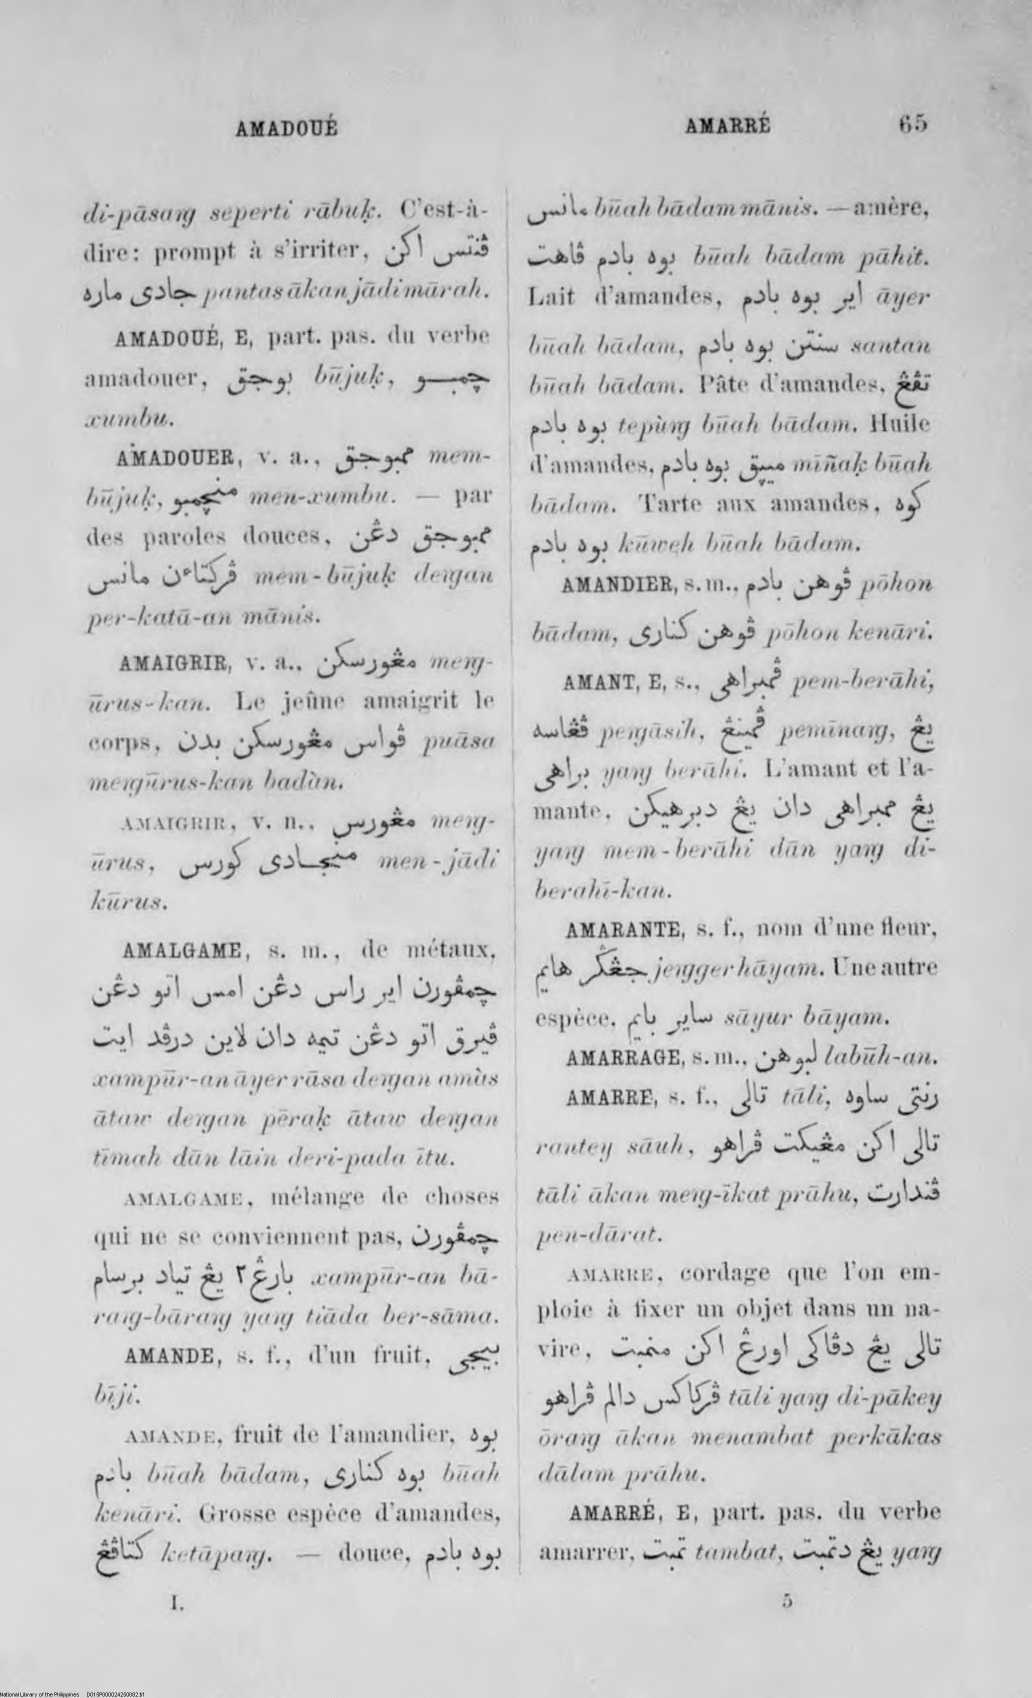 AMADOUÉ
AMARRÉ 65
di-pāsaŋ seperti rābuḳ. C'est-à-
dire: prompt à s'irriter, ڤنتس اكن
جادى ماره pantas ākan jādi mārah.
AMADOUÉ, E, part. pas. du verbe
amadouer, بوجق būjuḳ, چمبو
xumbu.
AMADOUER, v. a., ممبوجق mem-
būjuḳ, منچمبو men-xumbu. — par
des paroles douces, ممبوجق دڠن
ڤركتاءن مانس mem-būjuḳ deŋan
per-katā-an mānis.
AMAIGRIR, v. a., مڠورسكن meŋ-
ūrus-kan. Le jeûne amaigrit le
corps, ڤواس مڠورسكن بدن puāsa
meŋūrus-kan badàn.
AMAIGRIR, v. n., مڠورس meŋ-
ūrus, منجادى كورس men-jādi
kūrus.
AMALGAME, s. m., de métaux,
چمڤورن اير راس دڠن امس اتو دڠن
ڤيرق اتو دڠن تيمه دان لاين درڤد ايت
xampūr-an āyer rāsa deŋan amàs
ātaw deŋan pēraḳ ātaw deŋan
tīmah dān lāin deri-pada ītu.
AMALGAME, mélange de choses
qui ne se conviennent pas, چمڤورن
بارڠ٢ يڠ تياد برسام xampūr-an bā-
raŋ-bāraŋ yaŋ tiāda ber-sāma.
AMANDE, s. f., d'un fruit, بيجى
bīji.
AMANDE, fruit de l'amandier, بوه
بادم būah bādam, بوه كنارى būah
kenāri. Grosse espèce d'amandes,
كتاڤڠ ketāpaŋ. — douce, بوه بادم
I.
مانس būah bādam mānis. — amère,
بوه بادم ڤاهت būah bādam pāhit.
Lait d'amandes, اير بوه بادم āyer
būah bādam, سنتن بوه بادم santan
būah bādam. Pâte d'amandes, تڤڠ
بوه بادم tepùŋ būah bādam. Huile
d'amandes, ميپق بوه بادم mīñaḳ būah
bādam. Tarte aux amandes, كوه
بوه بادم kūweh būah bādam.
AMANDIER, s. m., ڤوهن بادم pōhon
bādam, ڤوهن كنارى pōhon kenāri.
AMANT, E, s., ڤمبراهى pem-berāhi,
ڤڠاسه peŋāsih, ڤمينڠ pemīnaŋ, يڠ
براهى yaŋ berāhi. L'amant et l'a-
mante, يڠ ممبراهى دان يڠ دبرهيكن
yaŋ mem-berāhi dān yaŋ di-
berahī-kan.
AMARANTE, s. f., nom d'une fleur,
جڠݢر هايم jeŋger hāyam. Une autre
espèce, ساير بايم sāyur bāyam.
AMARRAGE, s. m., لبوهن labūh-an.
AMARRE, s. f., تالى tāli, رنتى ساوه
rantey sāuh, تالى اكن مڠيكت ڤراهو
tāli ākan meŋ-īkat prāhu, ڤندارت
pen-dārat.
AMARRE, cordage que l'on em-
ploie à fixer un objet dans un na-
vire, تالى يڠ دڤاكى اورڠ اكن منمبت
ڤركاكس دالم ڤراهو tāli yaŋ di-pākey
ōraŋ ākan menambat perkākas
dālam prāhu.
AMARRÉ, E, part. pas. du verbe
amarrer, تمبت tambat, يڠ دتمبت yaŋ
5
National Library of the Philippines